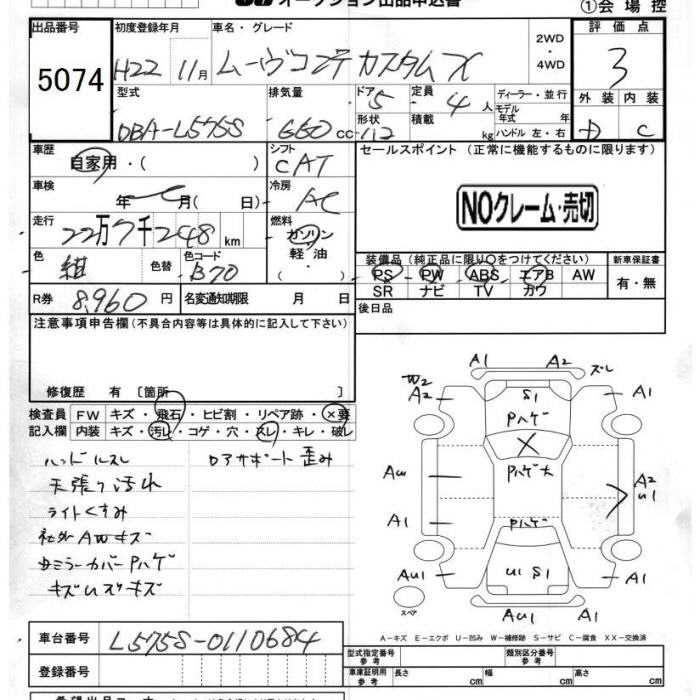 オークション出品申込書
①会場控
出品番号
5074
初度登録年月
H22 11月
車名・グレード
ムーヴコンテ カスタム X
2WD
・
4WD
評価点
3
型式
DBA-L575S
排気量
660 cc
ドア 5
形状
定員 4 人
積載 kg
ディーラー・並行
モデル
年式 年
ハンドル 左・右
外装 内装
D C
車歴
自家用・( )
シフト
CAT
セールスポイント (正常に機能するものに限ります)
車検
年 月( 日)
冷房
AC
NOクレーム・売切
走行
22万7千248km
燃料
ガソリン
軽・油
・( )
色
紺
色替
色コード
B70
装備品 (純正品に限り〇をつけてください)
PS PW ABS エアB AW
SR ナビ TV カワ
新車保証書
有・無
R券 8,960 円
名変通知期限 月 日
後日品
注意事項申告欄 (不具合内容等は具体的に記入して下さい)
修復歴 有 〔箇所 〕
検査員
記入欄
FW キズ・飛石・ヒビ割・リペア跡・×要
内装 キズ・汚レ・コゲ・穴・スレ・キレ・破レ
ハンドルスレ
ドアサポート歪み
天張り汚れ
ライトくすみ
社外AWキズ
サミラーカバーPハゲ
キズUズキズ
A1 A2 ズレ
W2
A2
S1
A1
Pハゲ
X
AU
Pハゲ大
A2
U1
A1
Pハゲ
AU1
U1 S1
A1
AU1 A1
スペア
A－キズ E－エクボ U－凹み W－補修跡 S－サビ C－腐食 XX－交換済
車台番号
L575S-0110684
登録番号
型式指定番号
参考
類別区分番号
参考
車庫証明用
参考
長さ cm
幅 cm
高さ cm